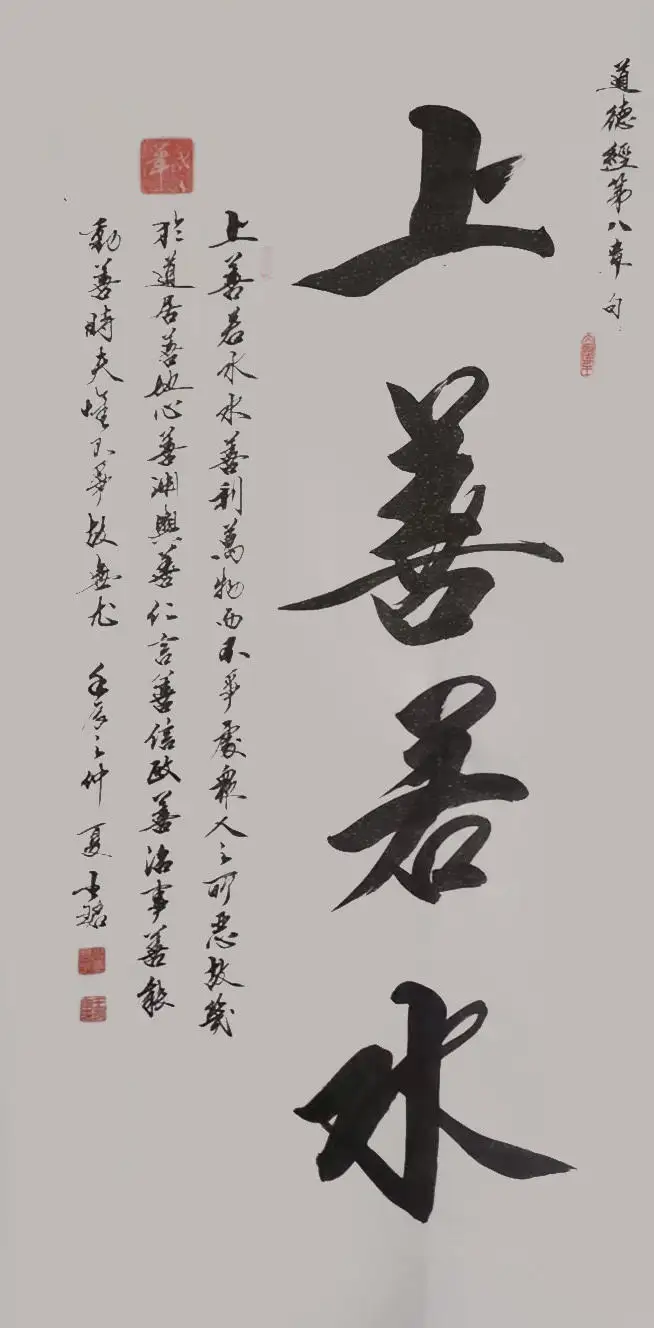 道德經第八章句
上善若水
上善若水水善利萬物而不爭處衆人之所惡故幾
於道居善地心善淵與善仁言善信政善治事善能
動善時夫唯不爭故無尤 壬辰之仲夏